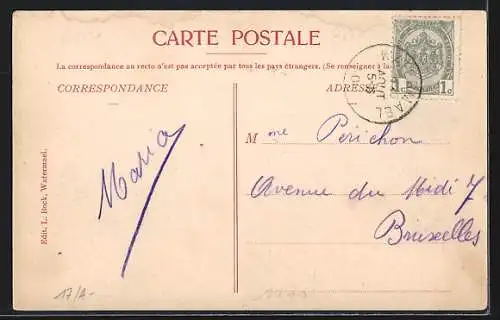 CARTE POSTALE
La correspondance au recto n'est pas acceptée par tous les pays étrangers. (Se renseigner à la
CORRESPONDANCE
ADRESSE
Mme Perichon
Maria
Avenue du Midi 7
Bruxelles
Edit. L. Bock, Watermael.
AOUT
1c
17/A-